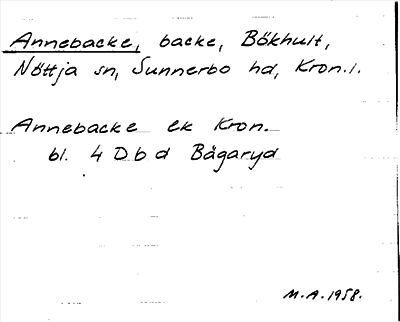 Annebacke, backe, Bökhult,
Nöttja sn, Sunnerbo hd, Kron.l.
Annebacke ek Kron.
bl. 4 D b d Bågaryd
M.A. 1958.